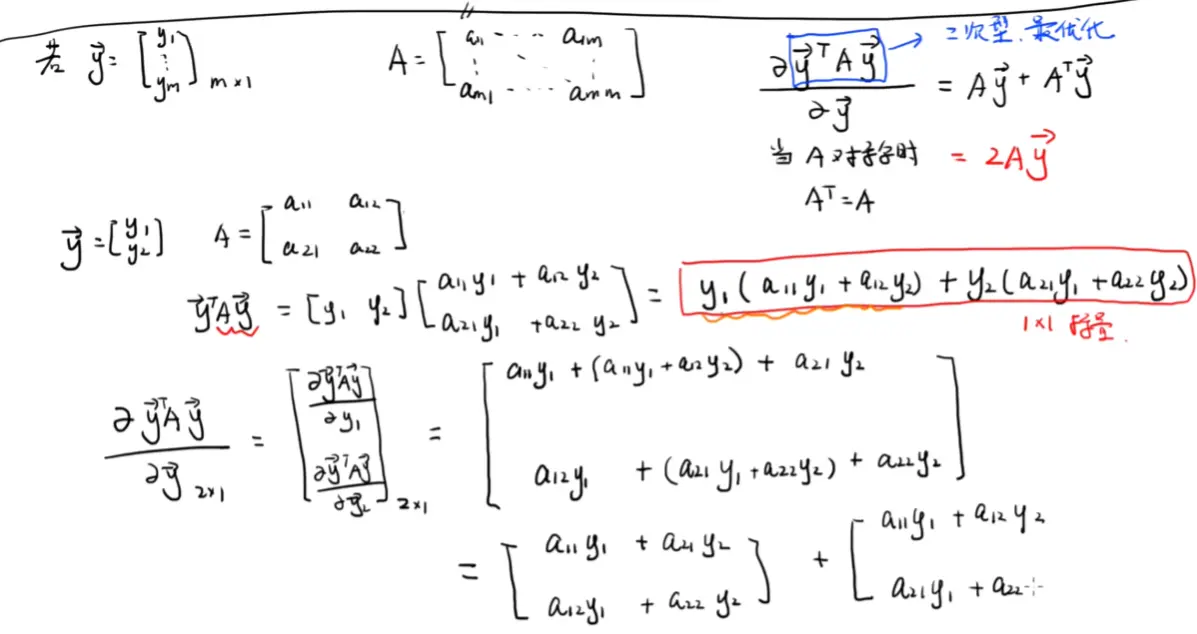 若 y⃗ = [y₁ ⋮ yₘ]ₘₓ₁ A = [a₁₁ ⋯ a₁ₘ ⋮ ⋱ ⋮ aₘ₁ ⋯ aₘₘ] ∂y⃗ᵀAy⃗ / ∂y⃗ = Ay⃗ + Aᵀy⃗ → 二次型、最优化
当 A 对称时 = 2Ay⃗
Aᵀ = A
y⃗ = [y₁ y₂] A = [a₁₁ a₁₂ a₂₁ a₂₂]
y⃗ᵀAy⃗ = [y₁ y₂] [a₁₁y₁ + a₁₂y₂ a₂₁y₁ + a₂₂y₂] = y₁(a₁₁y₁ + a₁₂y₂) + y₂(a₂₁y₁ + a₂₂y₂)
1×1 标量.
∂y⃗ᵀAy⃗ / ∂y⃗ ₂ₓ₁ = [∂y⃗ᵀAy⃗ / ∂y₁ ∂y⃗ᵀAy⃗ / ∂y⃗₂]₂ₓ₁ = [a₁₁y₁ + (a₁₁y₁ + a₁₂y₂) + a₂₁y₂ a₁₂y₁ + (a₂₁y₁ + a₂₂y₂) + a₂₂y₂]
= [a₁₁y₁ + a₂₁y₂ a₁₂y₁ + a₂₂y₂] + [a₁₁y₁ + a₁₂y₂ a₂₁y₁ + a₂₂